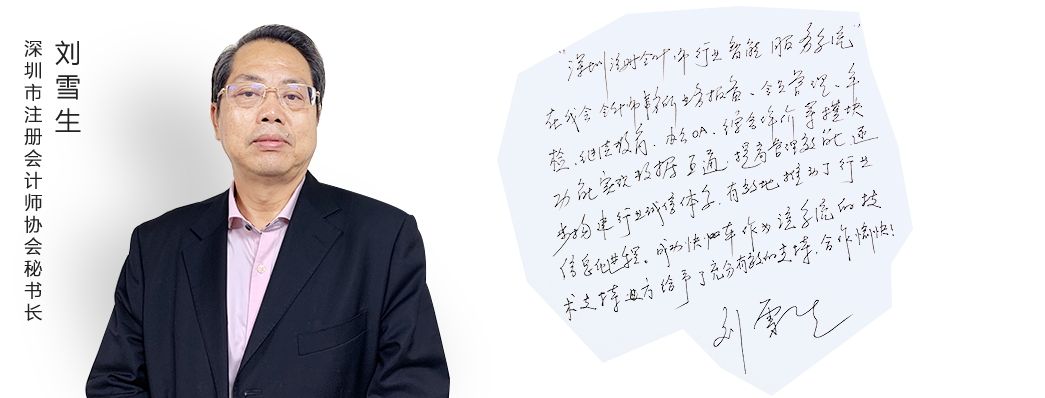 刘雪生
深圳市注册会计师协会秘书长
"深圳注册会计师行业智能服务系统"
在我会会计师事务所业务报备、会员管理、年
检、继续教育、办公OA、综合评价等模块
功能实现数据互通,提高管理效能,逐
步构建行业诚信体系,有效地推动了行业
信息化进程。成功快车作为该系统的技
术支持方给予了充分有效的支持,合作愉快!
刘雪生